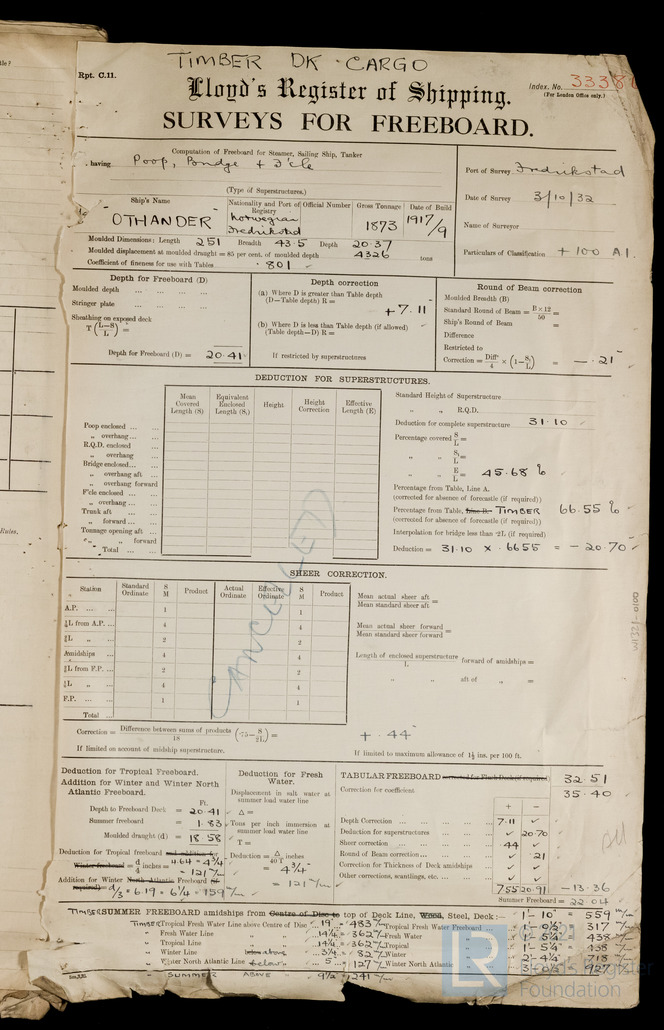 TIMBER DK. CARGO
Rpt. C.11.
Index. No. 33381
(For London Office only.)
Lloyd's Register of Shipping.
SURVEYS FOR FREEBOARD.
Computation of Freeboard for Steamer, Sailing Ship, Tanker
having Poop, Bridge + F'cle
(Type of Superstructures.)
Port of Survey Fredrikstad
Date of Survey 3/10/32
Name of Surveyor
Particulars of Classification + 100 A1.
Ship's Name
Nationality and Port of Registry
Official Number
Gross Tonnage
Date of Build
OTHANDER
Norwegian
Fredrikstad
1873
1917/9
Moulded Dimensions: Length 251 Breadth 43.5 Depth 20.37
Moulded displacement at moulded draught = 85 per cent. of moulded depth 4326 tons
Coefficient of fineness for use with Tables .801
Depth for Freeboard (D)
Moulded depth ... ... ... ...
Stringer plate ... ... ... ...
Sheathing on exposed deck
T (L-S/L) =
Depth for Freeboard (D) = 20.41
Depth correction
(a) Where D is greater than Table depth
(D-Table depth) R =
+7.11
(b) Where D is less than Table depth (if allowed)
(Table depth-D) R =
If restricted by superstructures
Round of Beam correction
Moulded Breadth (B)
Standard Round of Beam = B×12/50 =
Ship's Round of Beam =
Difference
Restricted to
Correction = Diff/4 × (1-S₁/L) = -.21
DEDUCTION FOR SUPERSTRUCTURES.
Mean Covered Length (S)
Equivalent Enclosed Length (S₁)
Height
Height Correction
Effective Length (E)
Poop enclosed ... ...
„ overhang ... ...
R.Q.D. enclosed
„ overhang
Bridge enclosed... ...
„ overhang aft ...
„ overhang forward
F'cle enclosed ... ...
„ overhang ... ...
Trunk aft ...
„ forward ... ...
Tonnage opening aft ...
„ „ forward
Total ... ...
Standard Height of Superstructure
„ „ R.Q.D.
Deduction for complete superstructure 31.10
Percentage covered S/L =
„ „ S₁/L =
„ „ E/L = 45.68 %
Percentage from Table, Line A.
(corrected for absence of forecastle (if required))
Percentage from Table, Line B. TIMBER 66.55 %
(corrected for absence of forecastle (if required))
Interpolation for bridge less than ·2L (if required)
Deduction = 31.10 × .6655 = -20.70
CANCELLED
SHEER CORRECTION.
Station
Standard Ordinate
S M
Product
Actual Ordinate
Effective Ordinate
S M
Product
A.P. ... ... 1 1
⅙L from A.P. ... 4 4
⅓L „ ... 2 2
Amidships ... 4 4
⅓L from F.P. ... 2 2
⅙L „ ... 4 4
F.P. ... ... 1 1
Total ...
Mean actual sheer aft / Mean standard sheer aft =
Mean actual sheer forward / Mean standard sheer forward =
Length of enclosed superstructure / L forward of amidships =
„ „ aft of „ =
Correction = Difference between sums of products / 18 (·75 - S/2L) = +.44
If limited on account of midship superstructure.
If limited to maximum allowance of 1½ ins. per 100 ft.
Deduction for Tropical Freeboard.
Addition for Winter and Winter North Atlantic Freeboard.
Ft.
Depth to Freeboard Deck = 20.41
Summer freeboard = 1.83
Moulded draught (d) = 18.58
Deduction for Tropical freeboard and addition for
Winter freeboard = d/4 inches = 4.64 = 4¾
= 121 m/m
Addition for Winter North Atlantic Freeboard (if required) =
d/3 = 6.19 = 6¼ = 159 m/m
Deduction for Fresh Water.
Displacement in salt water at summer load water line
Δ =
Tons per inch immersion at summer load water line
T =
Deduction = Δ/40T inches
= 4¾
= 121 m/m
TABULAR FREEBOARD corrected for Flush Deck (if required) 32.51
Correction for coefficient 35.40
+ -
Depth Correction ... 7.11
Deduction for superstructures ... 20.70
Sheer correction ... .44
Round of Beam correction... .21
Correction for Thickness of Deck amidships
Other corrections, scantlings, etc. ...
7.55 20.91 -13.36
Summer Freeboard = 22.04
TIMBER SUMMER FREEBOARD amidships from Centre of Disc to top of Deck Line, Wood, Steel, Deck:- 1'-10" = 559 m/m
TIMBER Tropical Fresh Water Line above Centre of Disc ... 19" = 483 m/m
„ Fresh Water Line „ „ 14¼ = 362 m/m
„ Tropical Line „ „ 14¼ = 362 m/m
„ Winter Line below above „ 3¼ = 82 m/m
„ Winter North Atlantic Line below „ 5 = 127 m/m
SUMMER ABOVE 9½ = 241 m/m
Tropical Fresh Water Freeboard ... 1'-0½" = 317 m/m
Fresh Water „ 1'-5¼" = 438
Tropical „ 1'-5¼" = 438
Winter „ 2'-4¼" = 718 m/m
Winter North Atlantic „ 3'-0½" = 927
LR
Lloyd's Register
Foundation